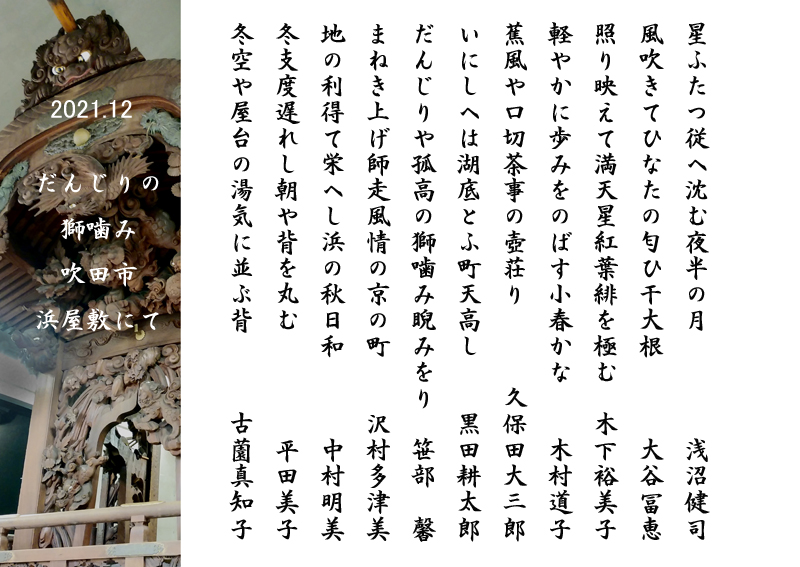 2021.12
だんじりの
獅噛み
吹田市
浜屋敷にて
星ふたつ従へ沈む夜半の月 浅沼健司
風吹きてひなたの匂ひ干大根 大谷冨恵
照り映えて満天星紅葉緋を極む 木下裕美子
軽やかに歩みをのばす小春かな 木村道子
蕉風や口切茶事の壺荘り 久保田大三郎
いにしへは湖底とふ町天高し 黒田耕太郎
だんじりや孤高の獅噛み睨みをり 笹部 馨
まねき上げ師走風情の京の町 沢村多津美
地の利得て栄へし浜の秋日和 中村明美
冬支度遅れし朝や背を丸む 平田美子
冬空や屋台の湯気に並ぶ背 古薗真知子